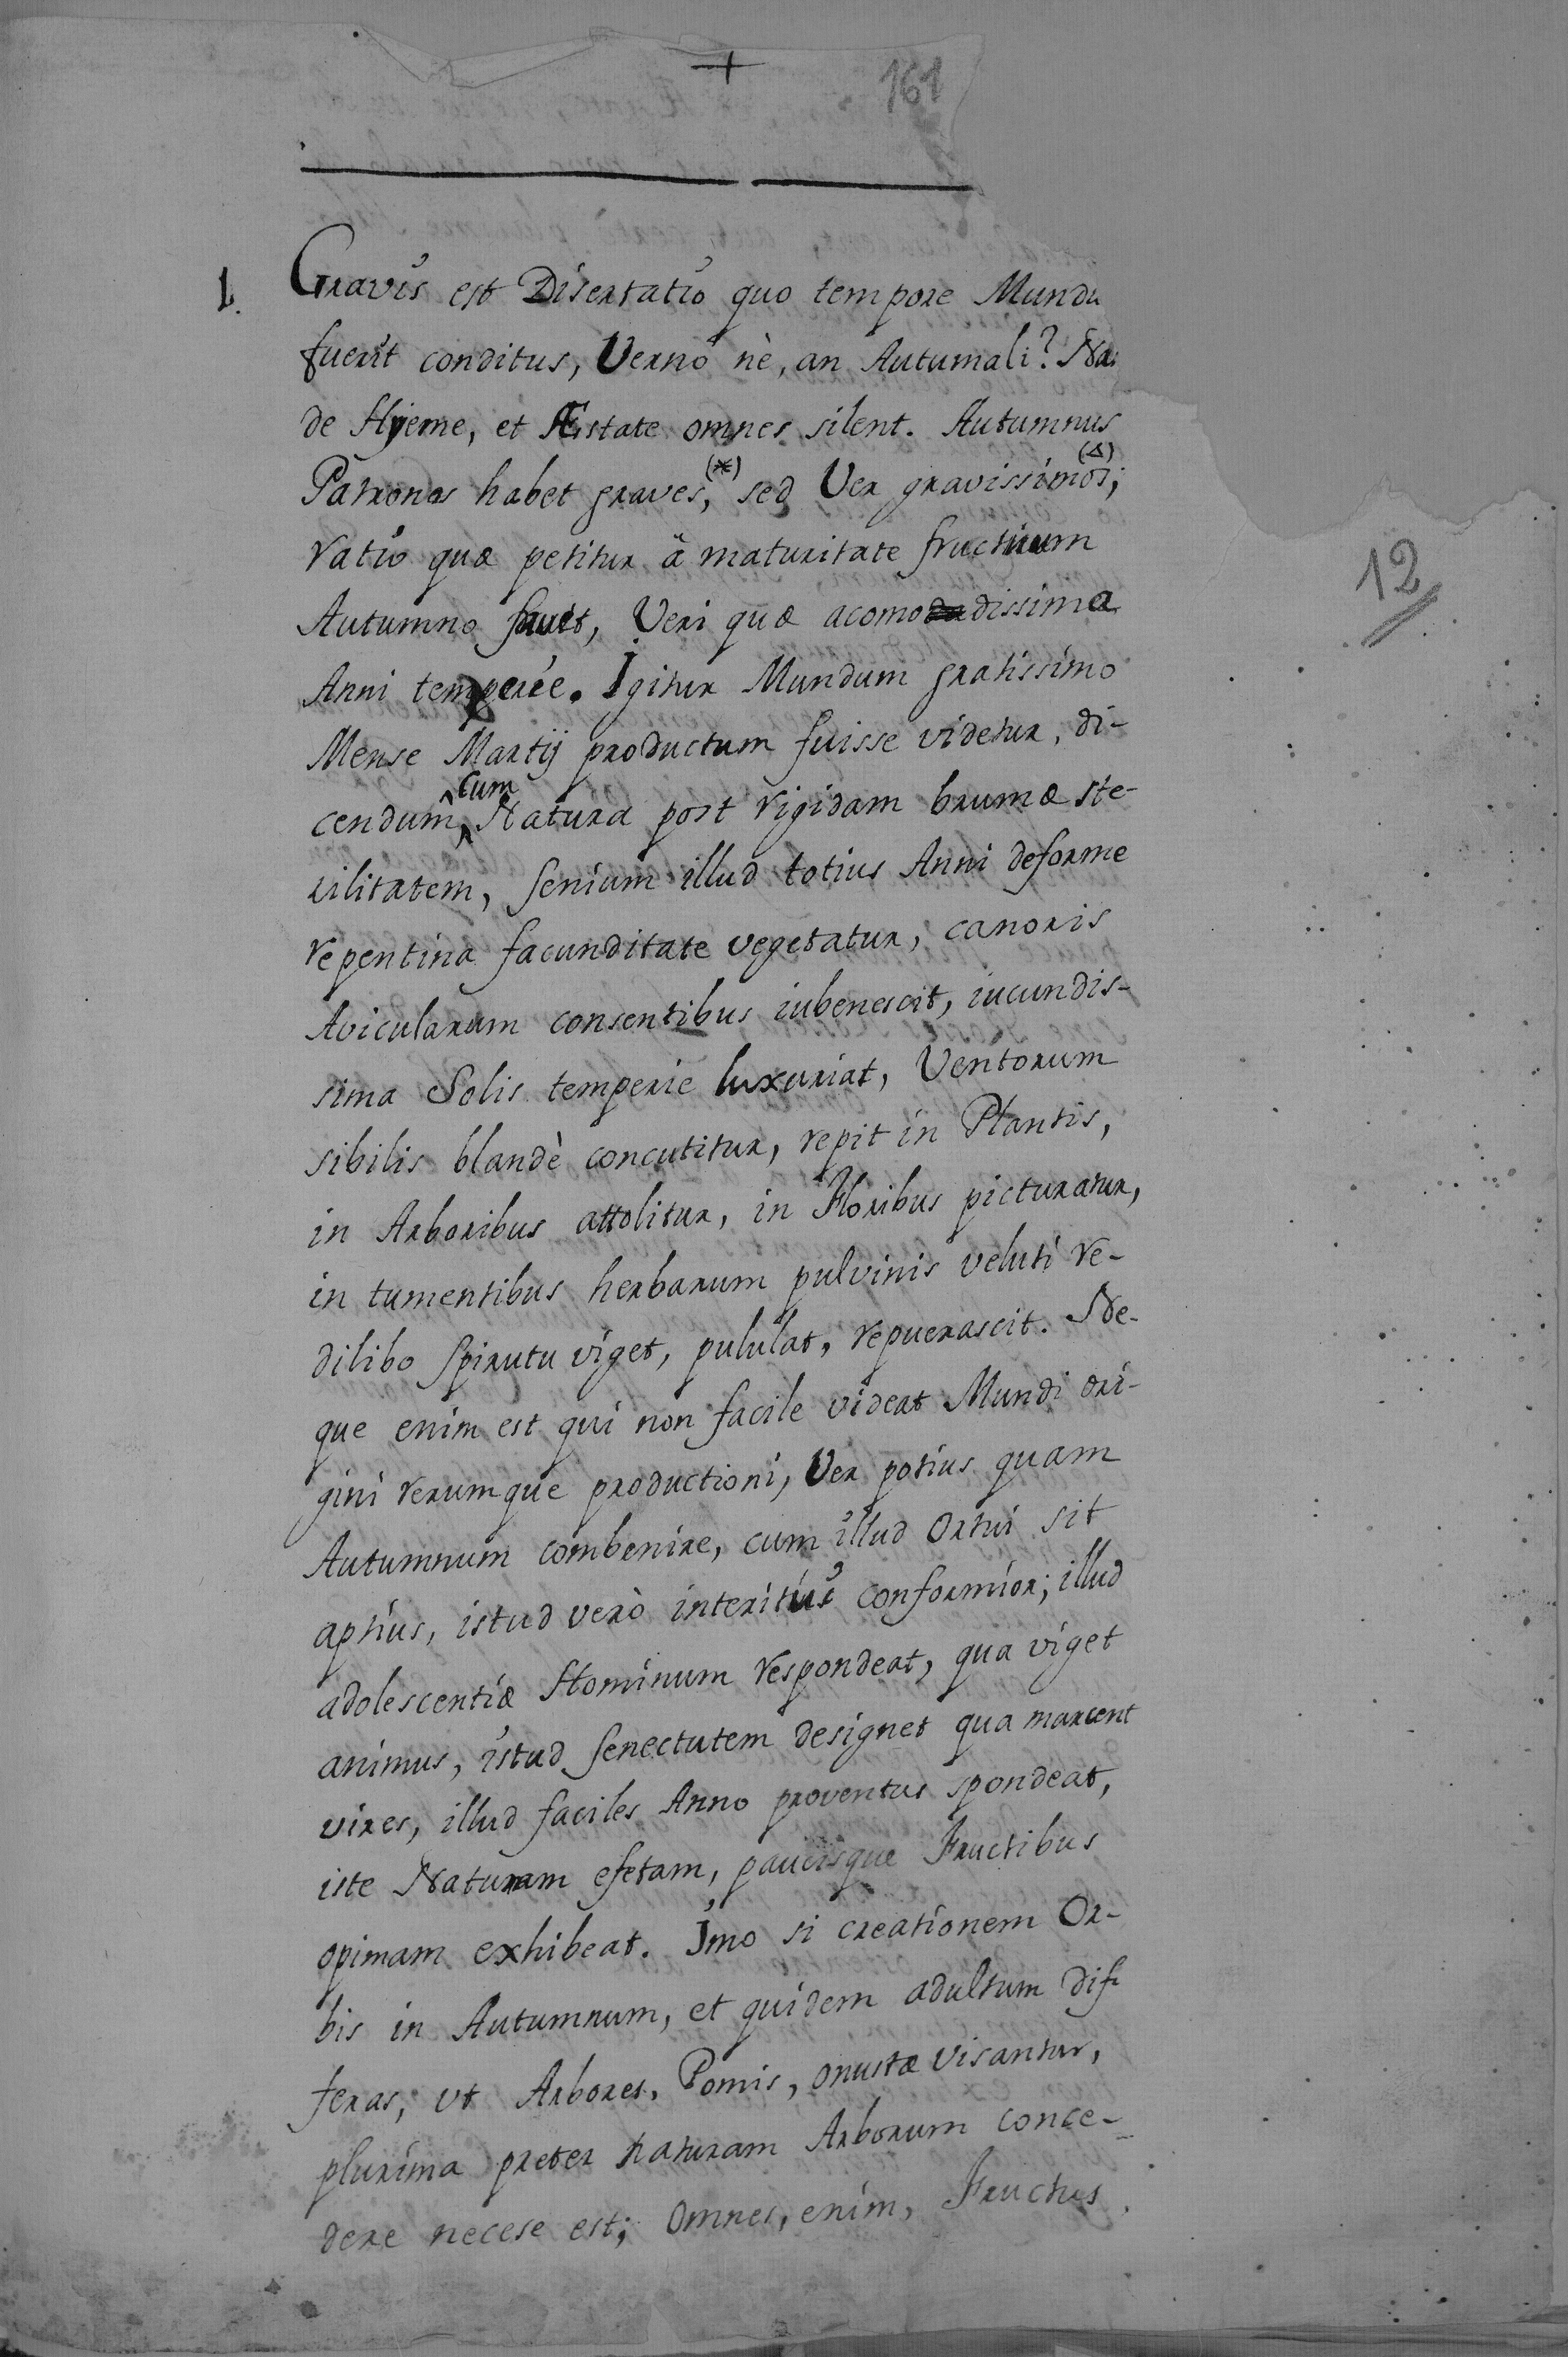 161
1. Gravis est Disertatio quo tempore Mundu
fuerit conditus, Verno nè, an Autumali? Na
de Hyeme, et Æstate omnes silent. Autumnus
Patronos habet graves,(*) sed Ver gravissimos(Δ);
ratio quæ petitur à maturitate fructuum
12
Autumno favet, Veri quæ acomodissima
Anni temperie. Igitur Mundum gratissimo
Mense Martij productum fuisse videtur, di-
cendum, cum Natura post rigidam brumæ ste-
rilitatem, senium illud totius Anni deforme
repentina facunditate vegetatur, canoris
Avicularum consentibus iubenescit, iucundis-
sima Solis temperie luxuriat, Ventorum
sibilis blandè concutitur, repit in Plantis,
in Arboribus attolitur, in Floribus picturatur,
in tumentibus herbarum pulvinis veluti re-
dilibo spirutu viget, pululat, repuerascit. Ne-
que enim est qui non facile videat Mundi ori-
gini rerumque productioni, Ver potius quam
Autumnum combenire, cum illud Ortui sit
aptius, istud verò interitui conformior; illud
adolescentiæ Hominum respondeat, qua viget
animus, istud senectutem designet qua marcent
vires, illud faciles Anno proventus spondeat,
iste Naturam efetam, paucisque Fructibus
opimam exhibeat. Imo si creationem Or-
bis in Autumnum, et quidem adultum dif-
feras, ut Arbores, Pomis, onustæ visantur,
plurima preter naturam Arborum conce-
dere necese est; Omnes, enim, Fructus